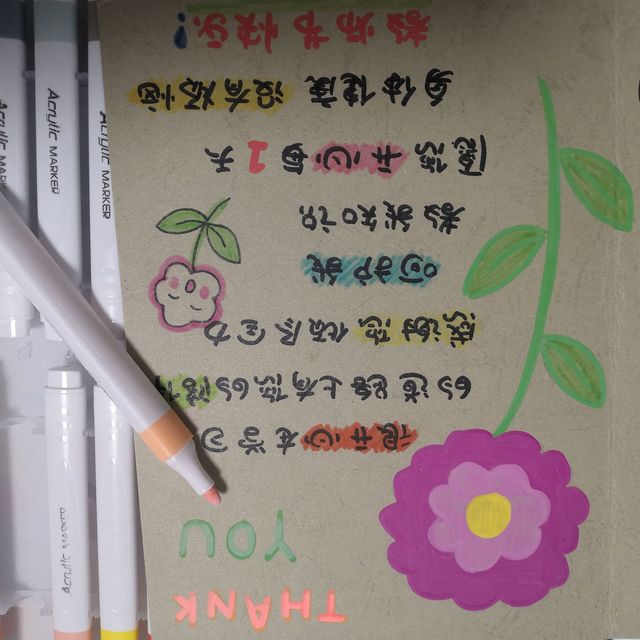 THANK
YOU
很开心在学习
的道路上有你的陪伴
感谢您倾尽全力
呵护我
教我知识
愿您开心每1天
身体健康 没有烦恼
教师节快乐!
Acrylic MARKER
Acrylic MARKER
Acrylic MARKER
Acrylic MARKER